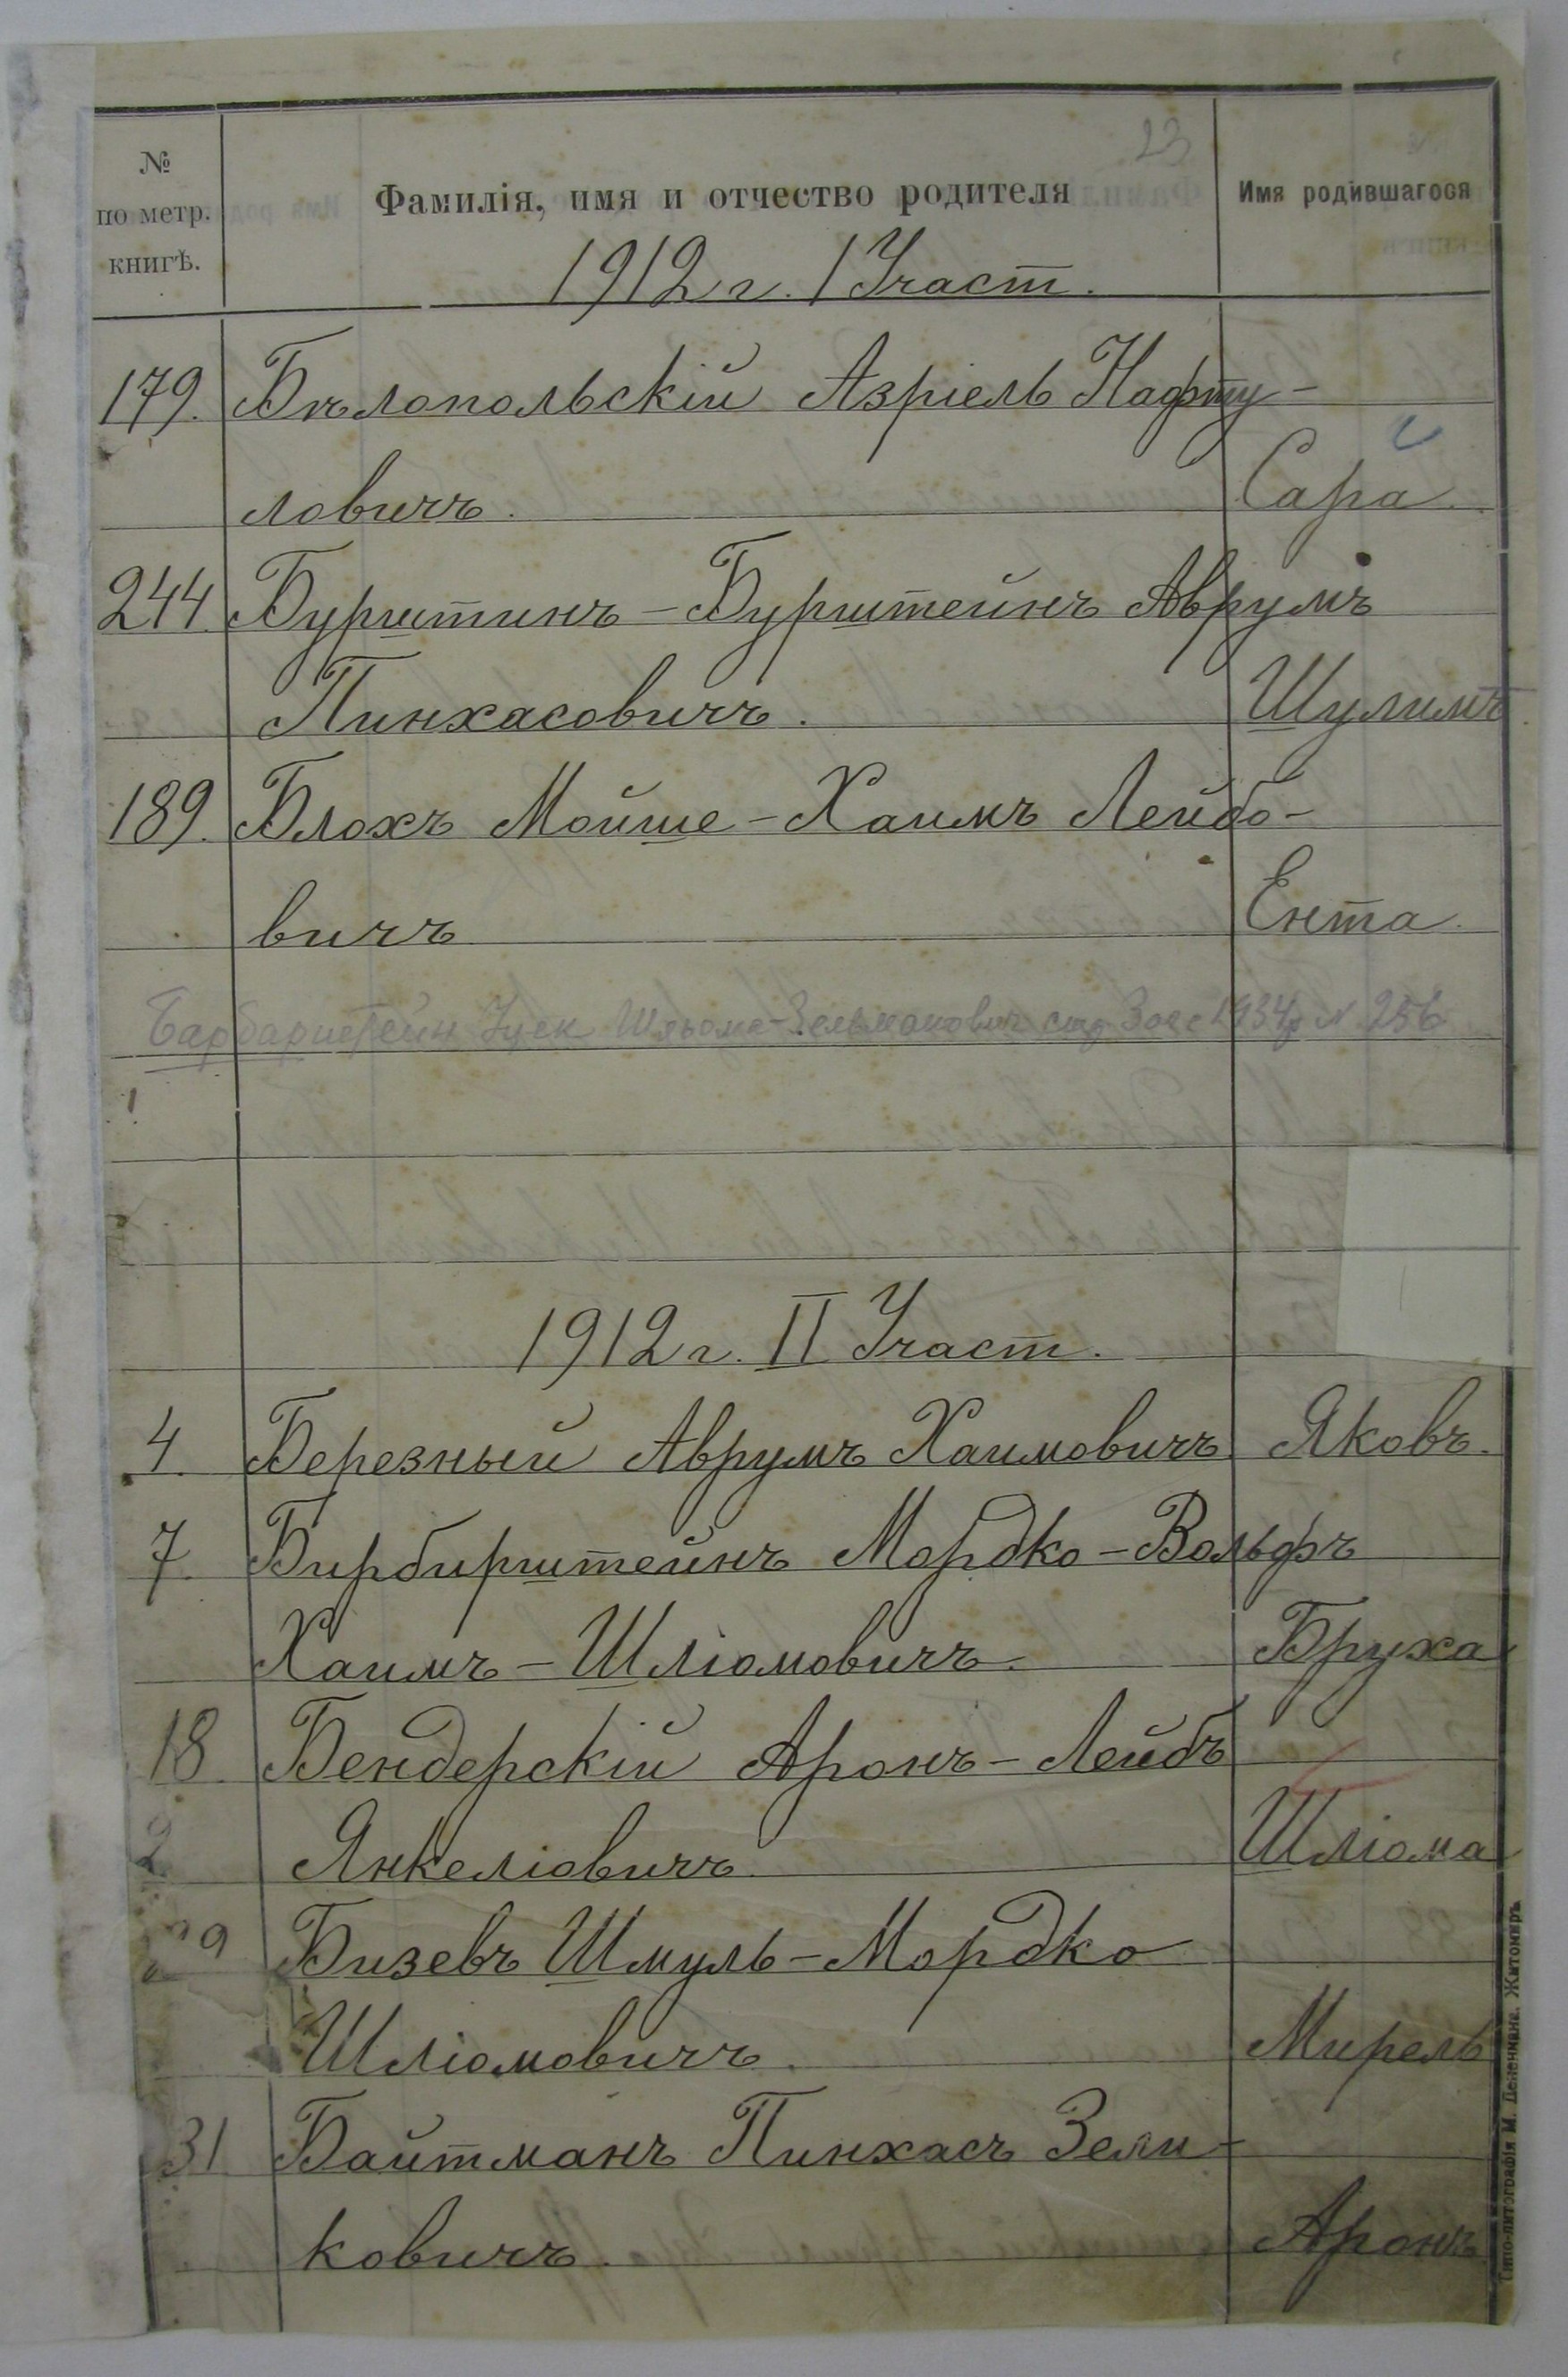 23
№
по метр.
книгѣ.
Фамилія, имя и отчество родителя
Имя родившагося
1912 г. I Участ.
179. Бѣлопольскій Азріель Нафту-
ловичъ. Сара
244 Бурштинъ-Бурштейнъ Аврумъ
Пинхасовичъ. Шулимъ
189. Блохъ Мойше-Хаимъ Лейбо-
вичъ Ента.
Барбарштейн Шльома-Зельманович 1934р № 256
1912 г. II Участ.
4. Березный Аврумъ Хаимовичъ Яковъ.
7. Бирбирштейнъ Мордко-Вольфъ
Хаимъ-Шліомовичъ. Бруха
18. Бендерскій Аронъ-Лейбъ
2 Янкеліовичъ Шліома
29 Бизевъ Шмуль-Мордко
Шліомовичъ. Мирель
31 Байтманъ Пинхасъ Зели-
ковичъ. Аронъ
Типо-литографія М. Дененмана. Житомиръ